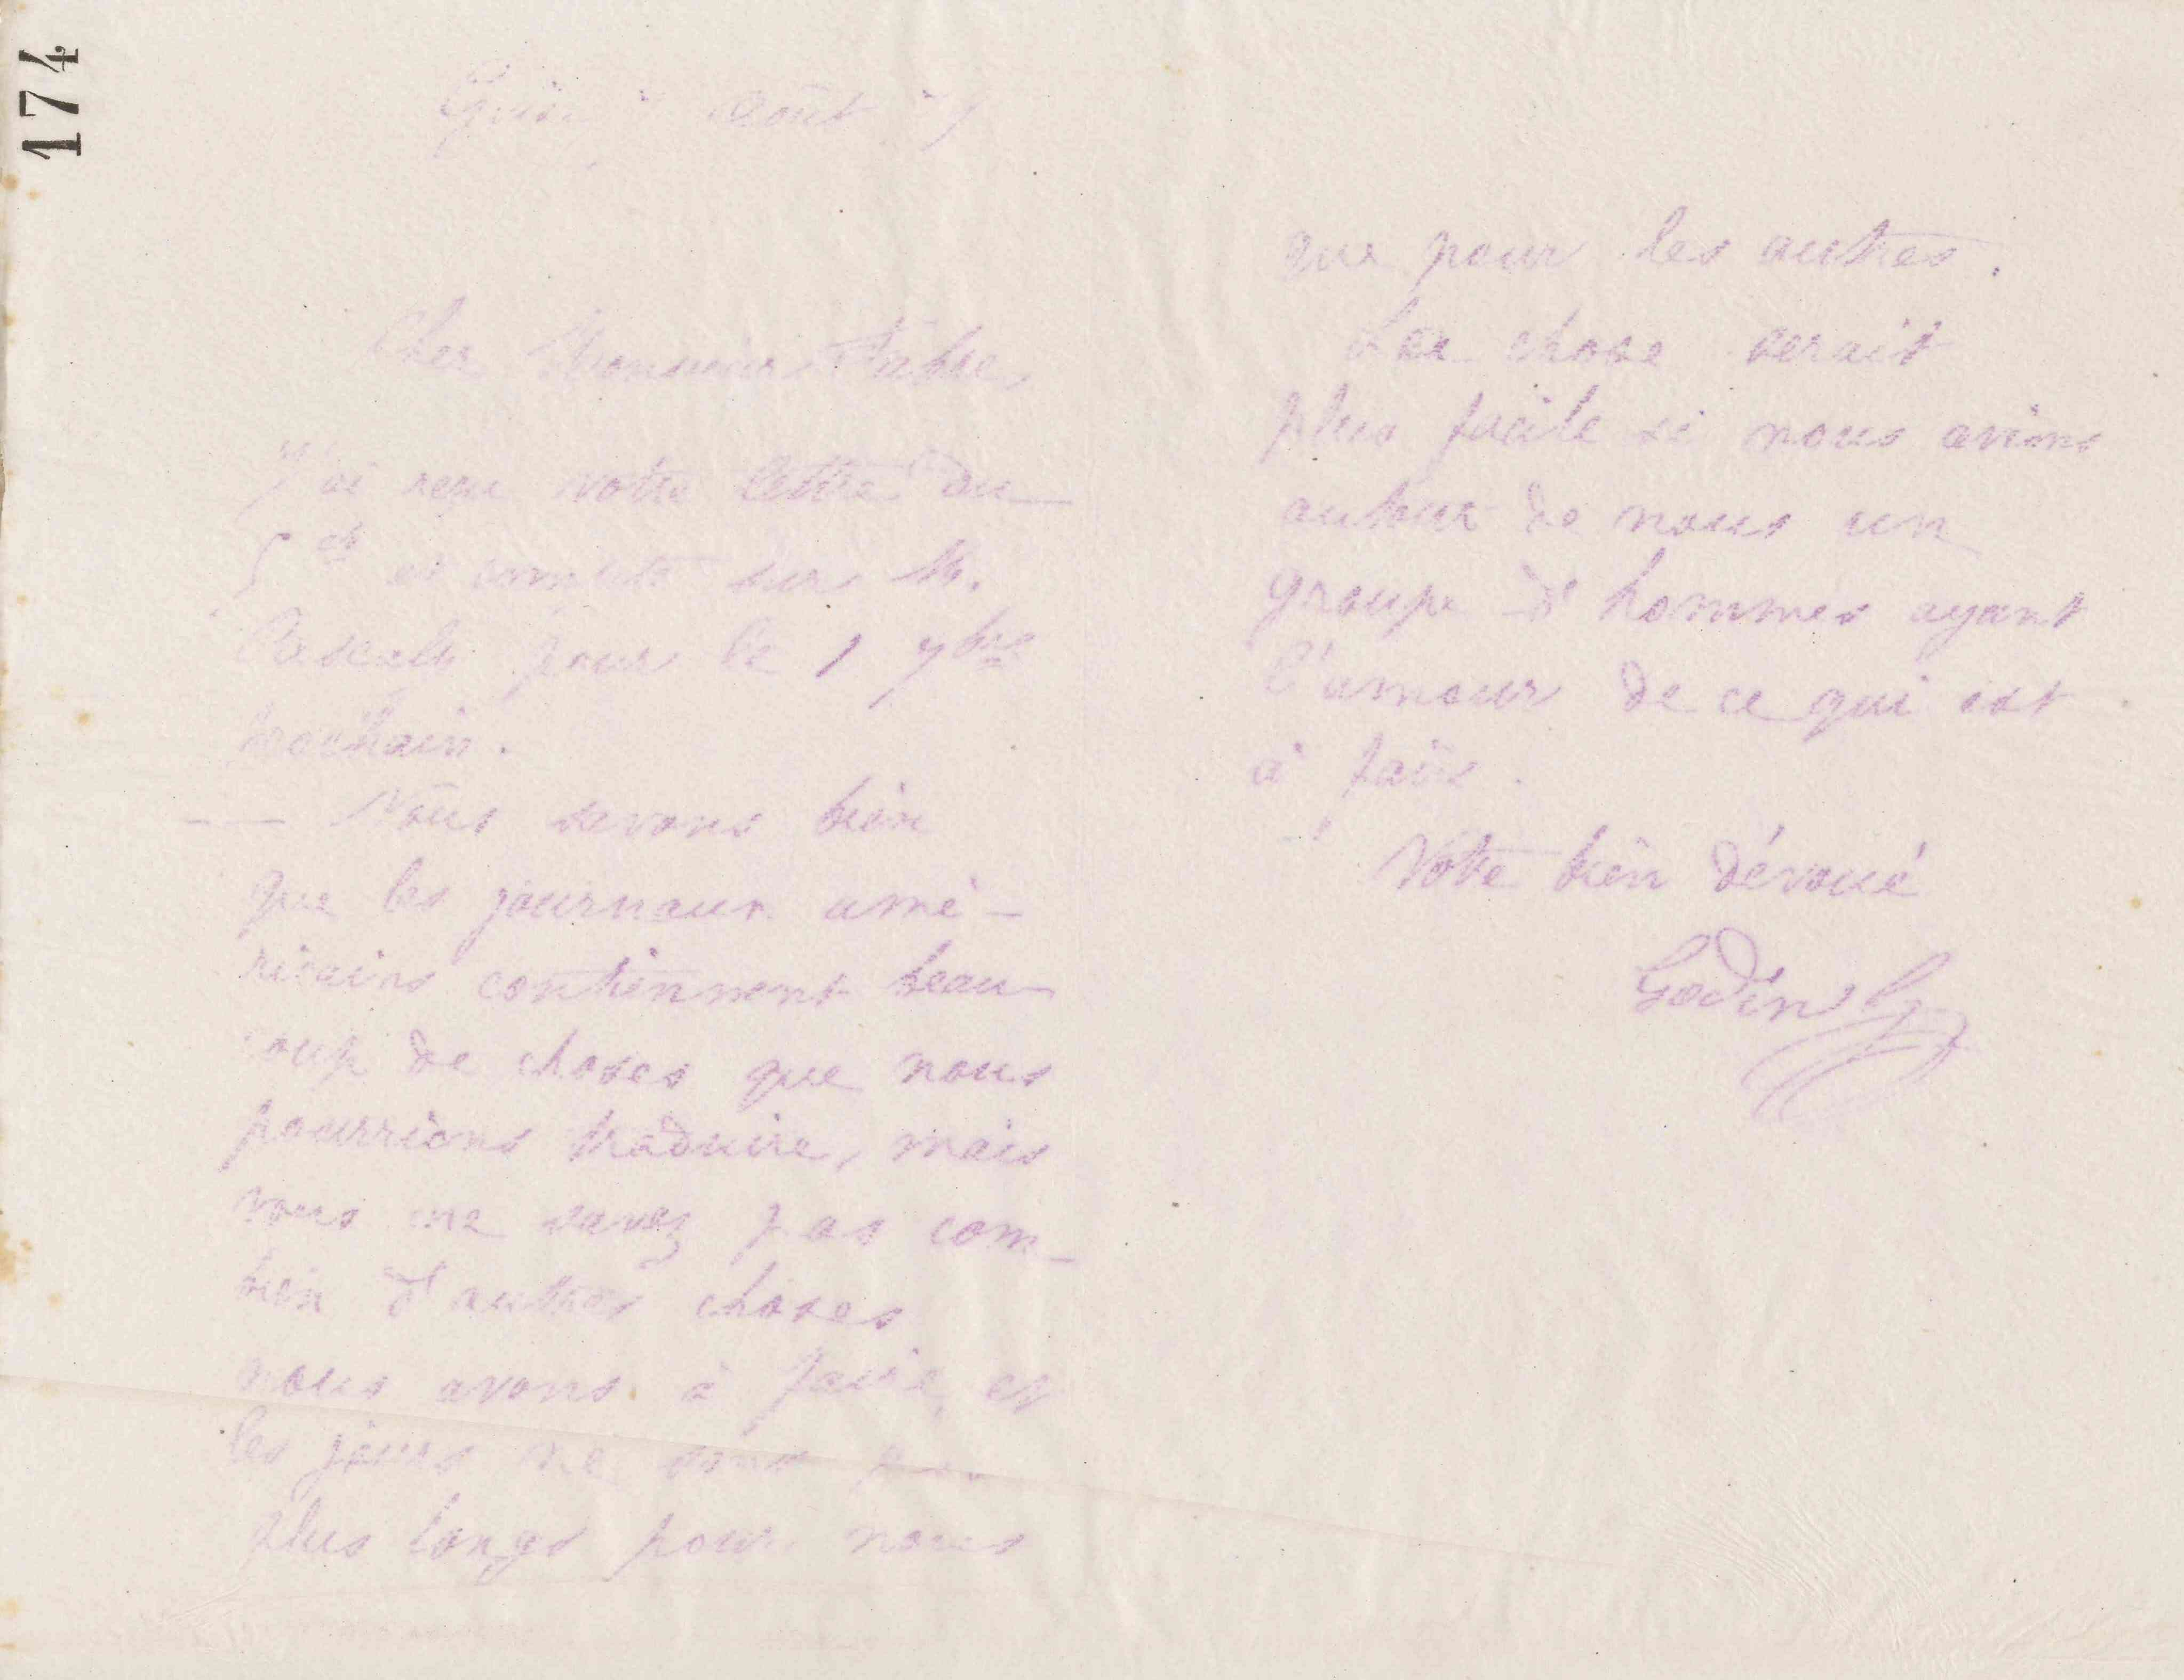 174
Guise août
Cher Monsieur Fabre
J'ai reçu votre lettre du
5 ct et compte sur M.
Pascaly pour le 1 7bre
prochain.
— Nous savons bien
que les journaux amé-
ricains contiennent beau-
coup de choses que nous
pourrions traduire, mais
vous ne savez pas com-
bien d'autres choses
nous avons à faire, et
les jours ne sont pas
plus longs pour nous
que pour les autres.
La chose serait
plus facile si nous avions
autour de nous un
groupe d'hommes ayant
l'amour de ce qui est
à faire.
Votre bien dévoué
Godin